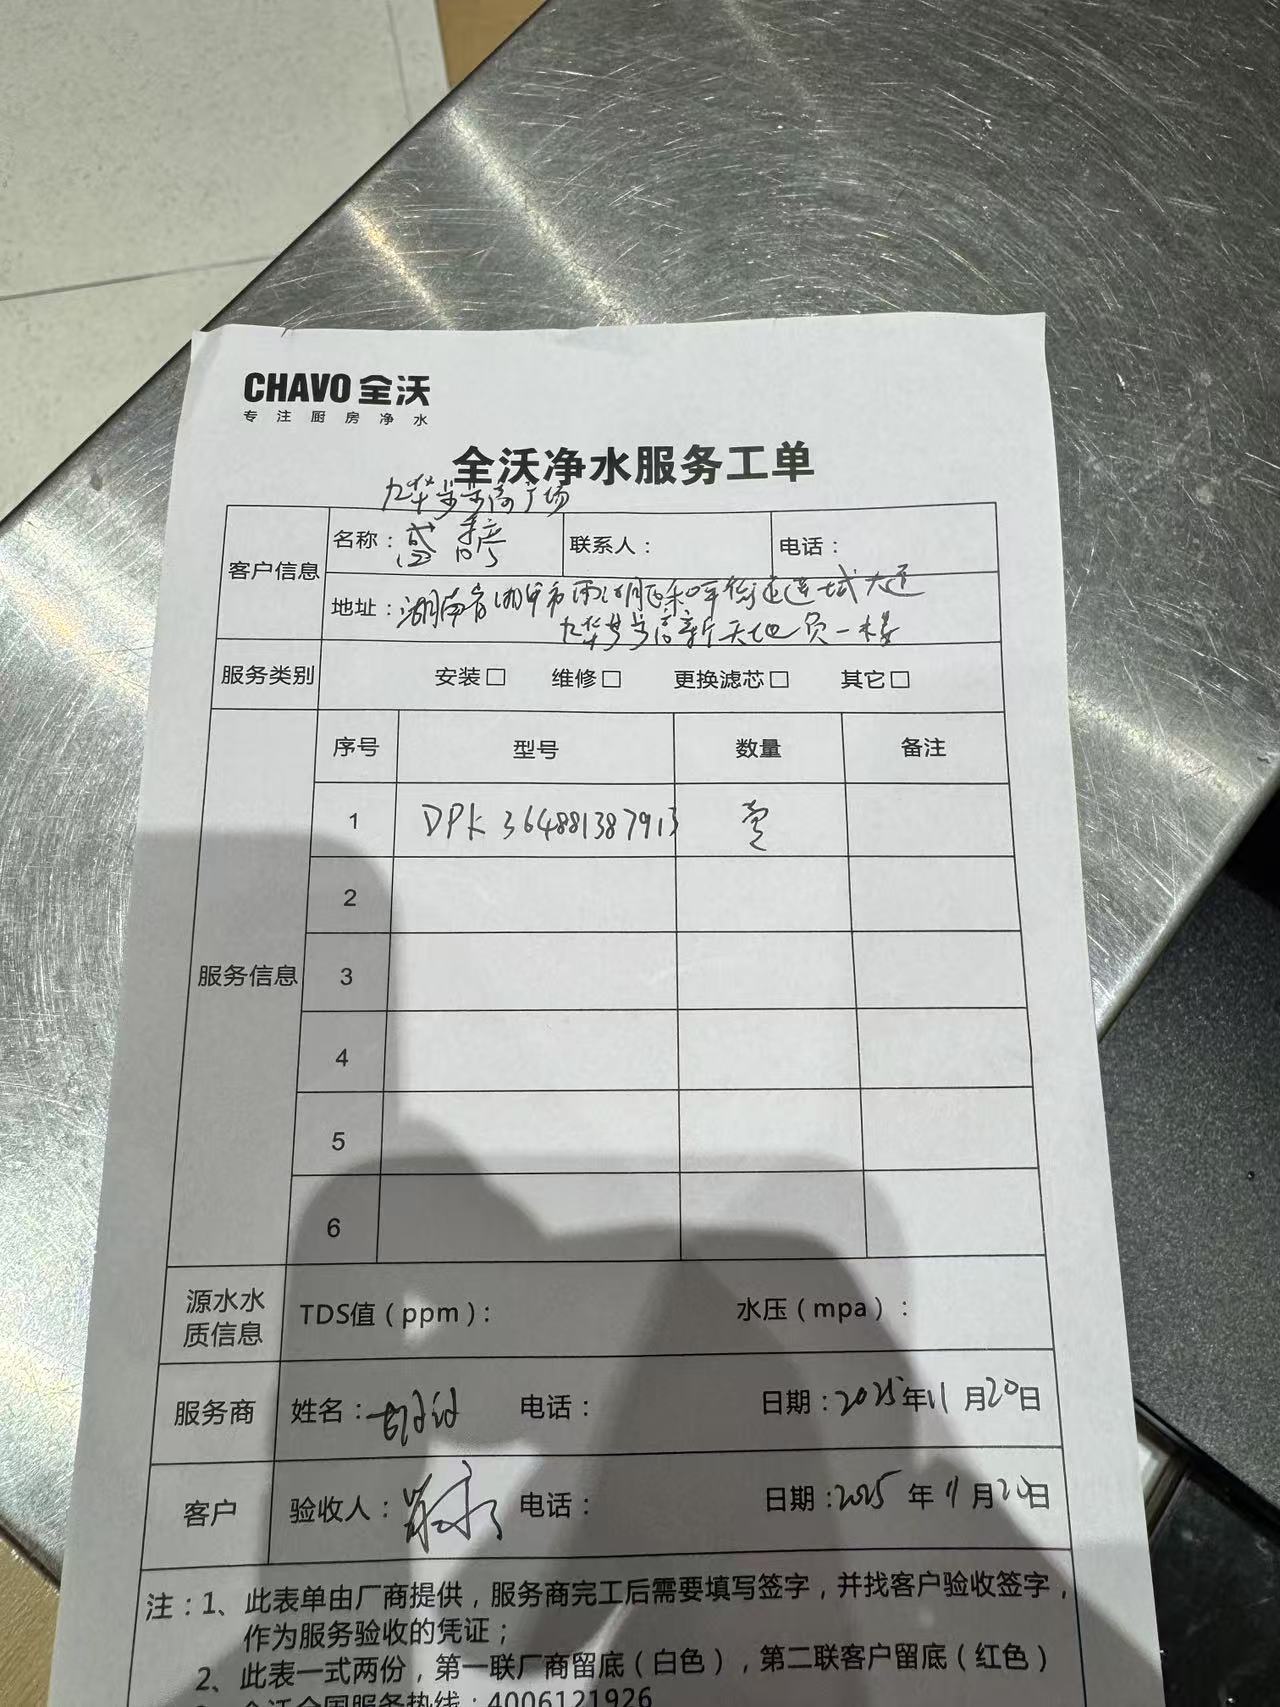 CHAVO 全沃
专注厨房净水
全沃净水服务工单
九华步步高广场
客户信息 名称： 联系人： 电话：
地址：湖南省湘潭市雨湖区和平街道莲城大道
九华步步高新天地负一楼
服务类别 安装□ 维修□ 更换滤芯□ 其它□
服务信息
序号 型号 数量 备注
1 DPK 364881387913 壹
2
3
4
5
6
源水水质信息 TDS值（ppm）： 水压（mpa）：
服务商 姓名： 电话： 日期：2025年11月20日
客户 验收人： 电话： 日期：2025年11月20日
注：1、此表单由厂商提供，服务商完工后需要填写签字，并找客户验收签字，
作为服务验收的凭证；
2、此表一式两份，第一联厂商留底（白色），第二联客户留底（红色）
全沃全国服务热线：4006121926